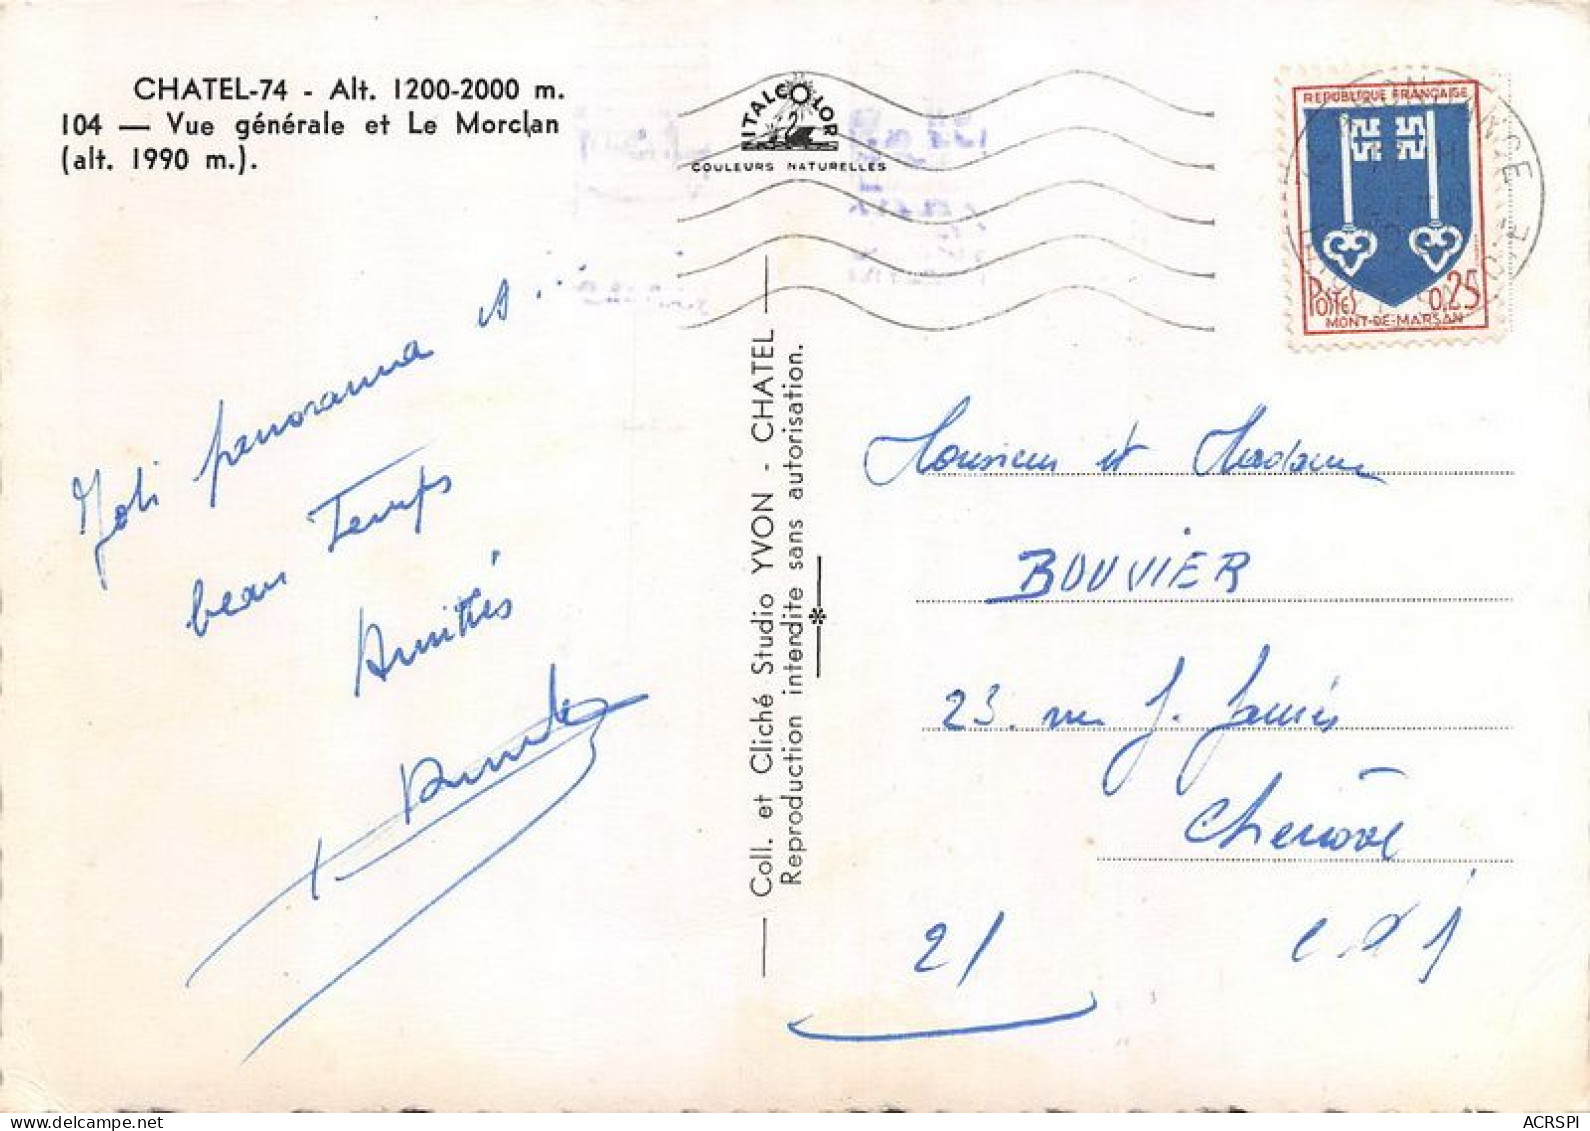 CHATEL-74 - Alt. 1200-2000 m.
104 — Vue générale et Le Morclan
(alt. 1990 m.).
VITALCOLOR
COULEURS NATURELLES
REPUBLIQUE FRANÇAISE
POSTES 0,25
MONT-DE-MARSAN
Joli panorama et ...
beau Temps
Amitiés
Coll. et Cliché Studio YVON - CHATEL
Reproduction interdite sans autorisation.
Monsieur et Madame
BOUVIER
23. rue J. Jaurès
Chenove
21
ACRSPI